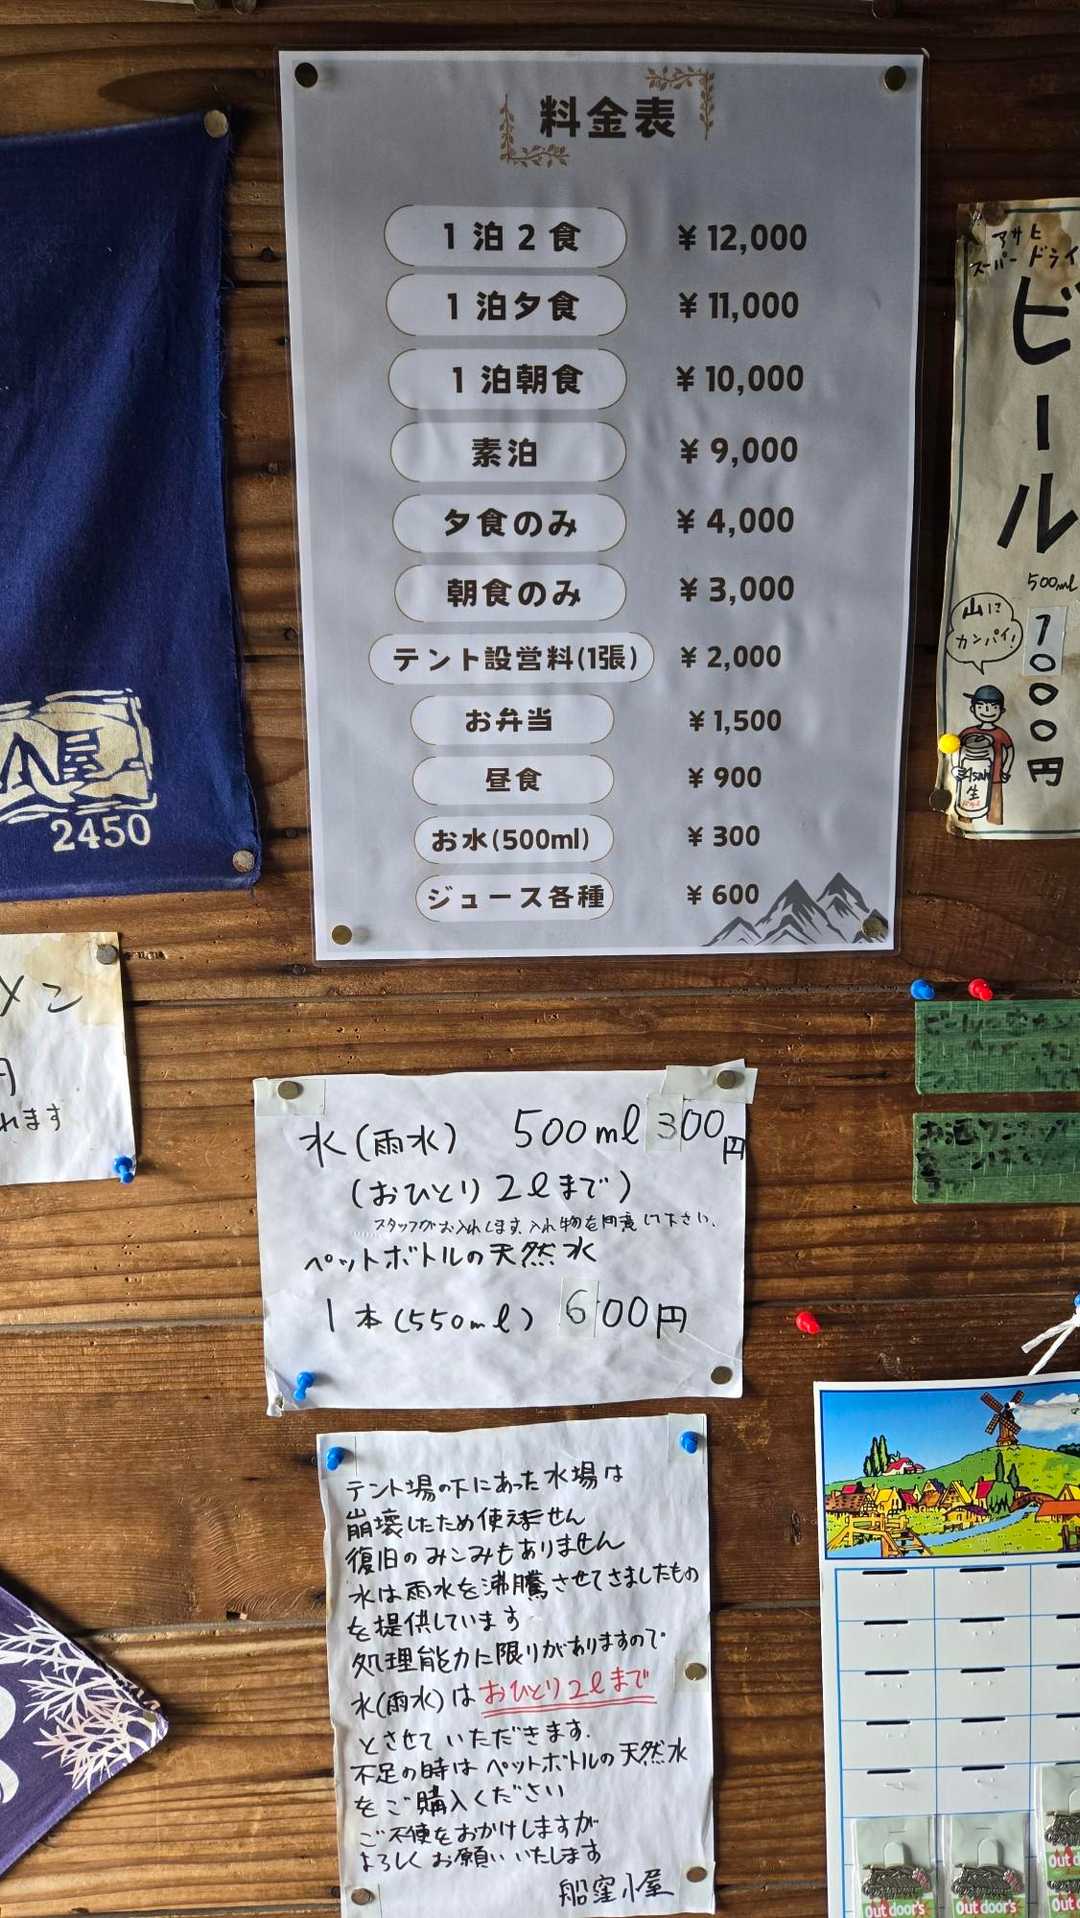 料金表
1泊2食 ¥12,000
1泊夕食 ¥11,000
1泊朝食 ¥10,000
素泊 ¥9,000
夕食のみ ¥4,000
朝食のみ ¥3,000
テント設営料(1張) ¥2,000
お弁当 ¥1,500
昼食 ¥900
お水(500ml) ¥300
ジュース各種 ¥600
小屋
2450
アサヒ
スーパードライ
ビール
500ml
1000円
山に
カンパイ!
生
メン
円
れます
水(雨水) 500ml 300円
(おひとり 2ℓまで)
スタッフがお入れします。入れ物を用意して下さい。
ペットボトルの天然水
1本(550ml) 600円
テント場の下にあった水場は
崩壊したため使えません
復旧のみこみもありません
水は雨水を沸騰させてさましたもの
を提供しています
処理能力に限りがありますので
水(雨水)はおひとり2ℓまで
とさせていただきます.
不足の時はペットボトルの天然水
をご購入ください
ご不便をおかけしますが
よろしくお願いいたします
船窪小屋
Outdoor's
Outdoor's
Out do